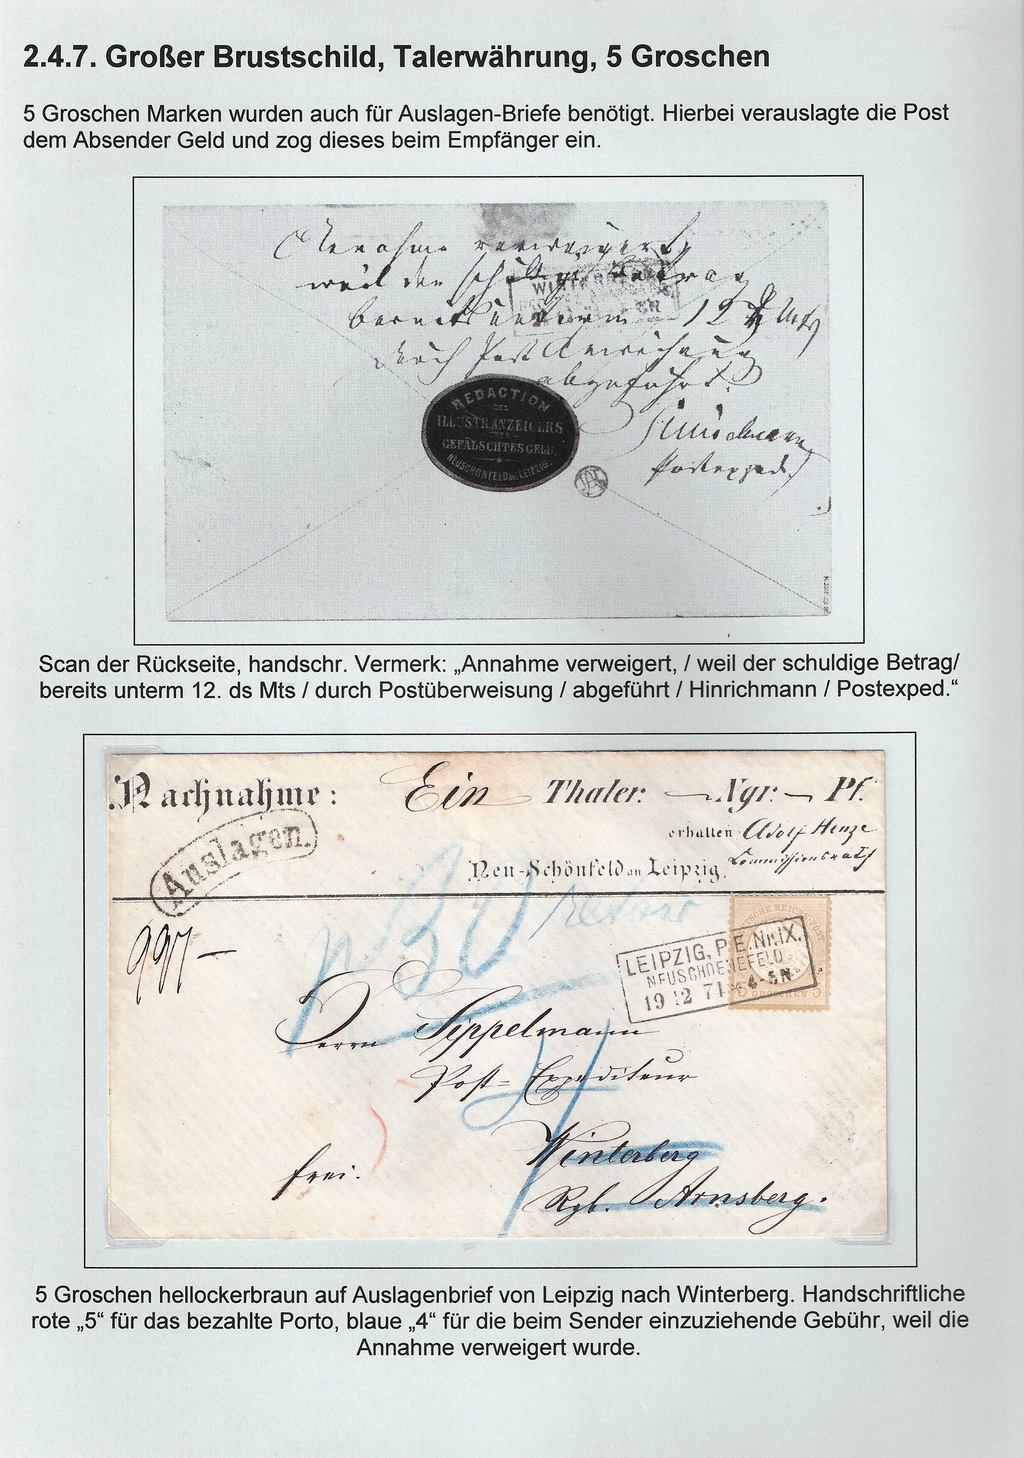 2.4.7. Großer Brustschild, Talerwährung, 5 Groschen
5 Groschen Marken wurden auch für Auslagen-Briefe benötigt. Hierbei verauslagte die Post
dem Absender Geld und zog dieses beim Empfänger ein.
Annahme verweigert,
weil der schuldige Betrag
bereits unterm 12 d Mts
durch Post
abgeführt.
Postexped.
WINTERBERG
REDACTION
DES
ILLUSTR. ANZEIGERS
ÜBER
GEFÄLSCHTES GELD.
NEUSCHÖNFELD BEI LEIPZIG.
Scan der Rückseite, handschr. Vermerk: „Annahme verweigert, / weil der schuldige Betrag/
bereits unterm 12. ds Mts / durch Postüberweisung / abgeführt / Hinrichmann / Postexped.“
Nachnahme: Ein Thaler: — Ngr: — Pf.
erhalten Adolf Henze
Commissionsrath
Neu-Schönfeld an Leipzig.
Auslagen.
retour
997 —
LEIPZIG, P.E. Nr. IX.
NEUSCHOENEFELD
19 12 74 4-5N
Herrn Sippelmann
Post-Expediteur
Winterberg
frei.
Rgb. Arnsberg.
5 Groschen hellockerbraun auf Auslagenbrief von Leipzig nach Winterberg. Handschriftliche
rote „5“ für das bezahlte Porto, blaue „4“ für die beim Sender einzuziehende Gebühr, weil die
Annahme verweigert wurde.